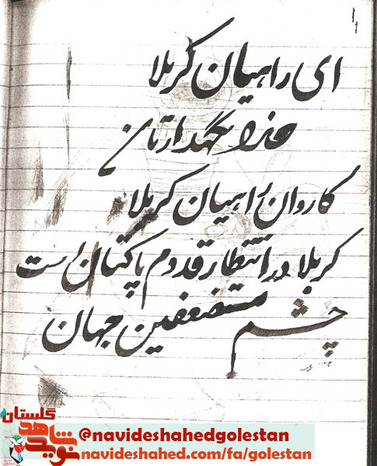 ای راهیان کربلا
خدا نگهدارتان
کاروان راهیان کربلا
کربلا در انتظار قدوم پاکتان است
چشم مستضعفین جهان
گلستان
نوید شاهد
@navideshahedgolestan
navideshahed.com/fa/golestan